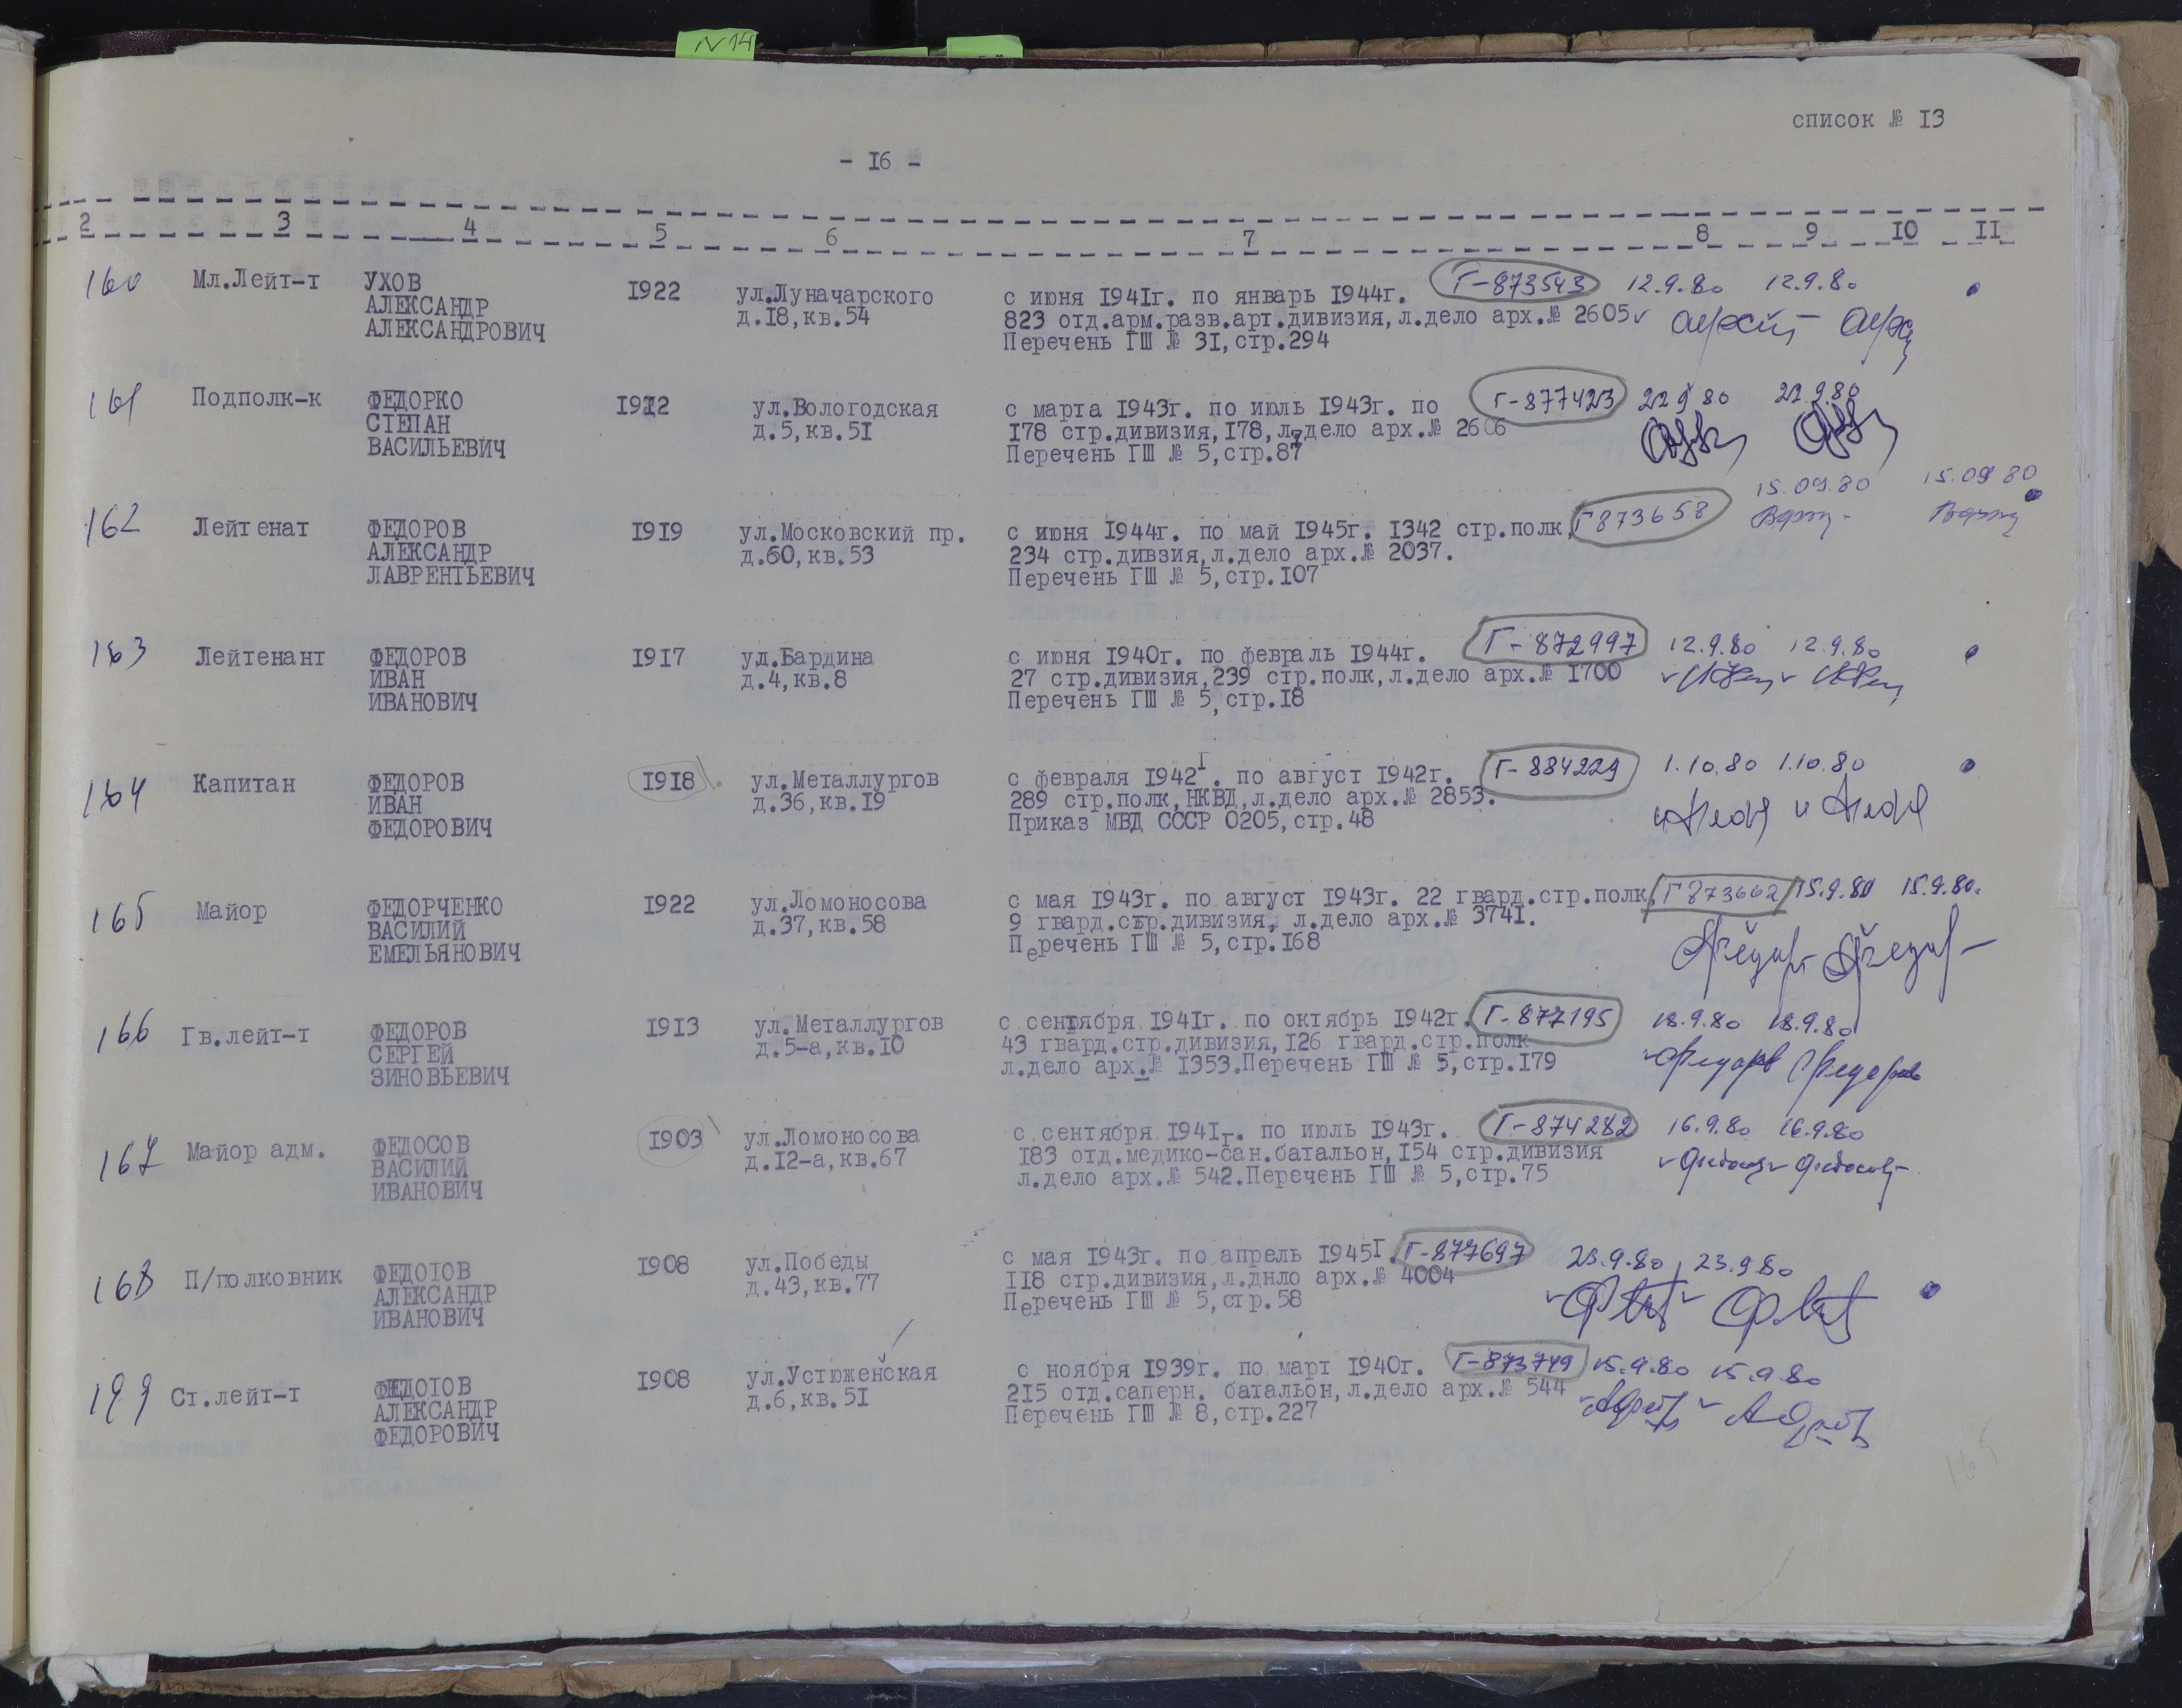 N14
список № I3
- I6 -
2 3 4 5 6 7 8 9 10 II
160 Мл.Лейт-т УХОВ I922 ул.Луначарского с июня I94Iг. по январь I944г. Г-873543 12.9.80 12.9.80
АЛЕКСАНДР д.I8,кв.54 823 отд.арм.разв.арт.дивизия,л.дело арх.№ 2605
АЛЕКСАНДРОВИЧ Перечень ГШ № 3I,стр.294
161 Подполк-к ФЕДОРКО I922 ул.Вологодская с марта I943г. по июль I943г. по Г-877423 22.9.80 22.9.80
СТЕПАН д.5,кв.5I I78 стр.дивизия,I78,л.дело арх.№ 2606
ВАСИЛЬЕВИЧ Перечень ГШ № 5,стр.87
162 Лейтенат ФЕДОРОВ I9I9 ул.Московский пр. с июня I944г. по май I945г. I342 стр.полк, Г873658 15.09.80 15.09.80
АЛЕКСАНДР д.60,кв.53 234 стр.дивзия,л.дело арх.№ 2037.
ЛАВРЕНТЬЕВИЧ Перечень ГШ № 5,стр.I07
163 Лейтенант ФЕДОРОВ I9I7 ул.Бардина с июня I940г. по февраль I944г. Г-872997 12.9.80 12.9.80
ИВАН д.4,кв.8 27 стр.дивизия,239 стр.полк,л.дело арх.№ I700
ИВАНОВИЧ Перечень ГШ № 5,стр.I8
164 Капитан ФЕДОРОВ I9I8 ул.Металлургов с февраля I942г. по август I942г. Г-884229 1.10.80 1.10.80
ИВАН д.36,кв.I9 289 стр.полк,НКВД,л.дело арх.№ 2853.
ФЕДОРОВИЧ Приказ МВД СССР 0205,стр.48
165 Майор ФЕДОРЧЕНКО I922 ул.Ломоносова с мая I943г. по август I943г. 22 гвард.стр.полк, Г873662 15.9.80 15.9.80.
ВАСИЛИЙ д.37,кв.58 9 гвард.стр.дивизия, л.дело арх.№ 374I.
ЕМЕЛЬЯНОВИЧ Перечень ГШ № 5,стр.I68
166 Гв.лейт-т ФЕДОРОВ I9I3 ул.Металлургов с сентября I94Iг. по октябрь I942г. Г-877195 18.9.80 18.9.80
СЕРГЕЙ д.5-а,кв.I0 43 гвард.стр.дивизия,I26 гвард.стр.полк
ЗИНОВЬЕВИЧ л.дело арх.№ I353.Перечень ГШ № 5,стр.I79
167 Майор адм. ФЕДОСОВ I903 ул.Ломоносова с сентября I94Iг. по июль I943г. Г-874282 16.9.80 16.9.80
ВАСИЛИЙ д.I2-а,кв.67 I83 отд.медико-сан.батальон,I54 стр.дивизия
ИВАНОВИЧ л.дело арх.№ 542.Перечень ГШ № 5,стр.75
168 П/полковник ФЕДОТОВ I908 ул.Победы с мая I943г. по апрель I945г. Г-877697 23.9.80 23.9.80
АЛЕКСАНДР д.43,кв.77 II8 стр.дивизия,л.днло арх.№ 4004
ИВАНОВИЧ Перечень ГШ № 5,стр.58
199 Ст.лейт-т ФЕДОТОВ I908 ул.Устюженская с ноября I939г. по март I940г. Г-873749 15.9.80 15.9.80
АЛЕКСАНДР д.6,кв.5I 2I5 отд.саперн. батальон,л.дело арх.№ 544
ФЕДОРОВИЧ Перечень ГШ № 8,стр.227